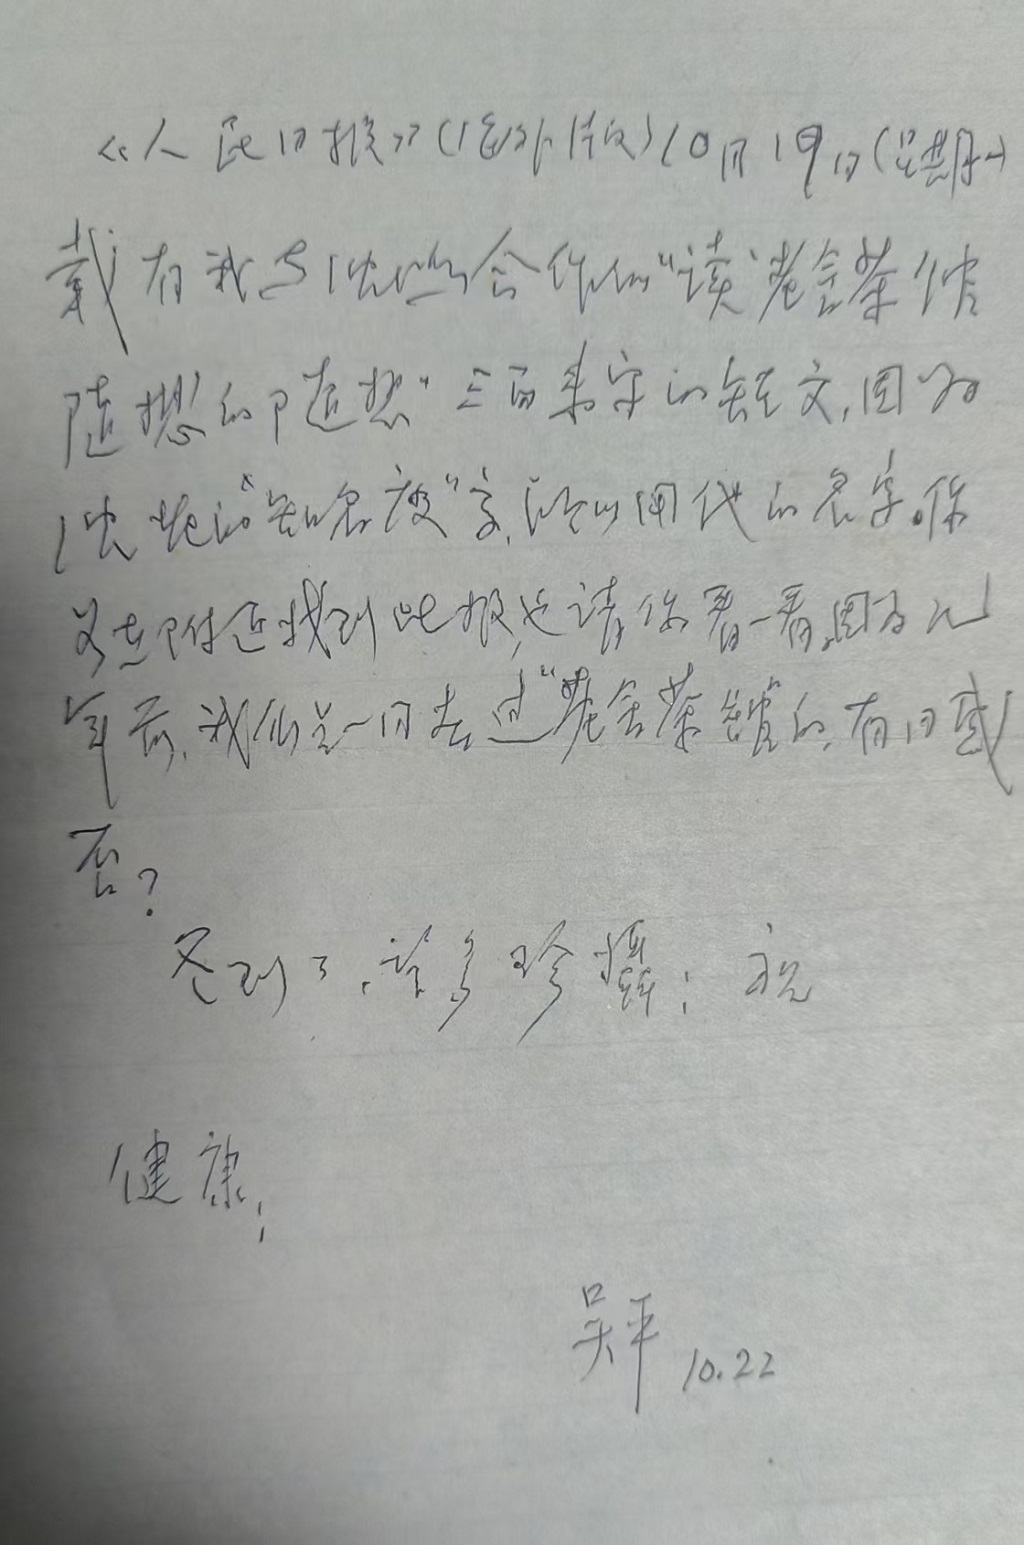 《人民日报》(海外版)10月19日(星期一)
载有我与沈 合作的“读‘老舍茶馆
随想’的随想”三百来字的短文,因为
沈 的“知名度”高,所以用他的名字。你
若在附近找到此报,也请你看一看,因为几
年前,我们是一同去过“老舍茶馆”的,有同感
否?
冬到了,请多珍摄;祝
健康;
吴平 10.22